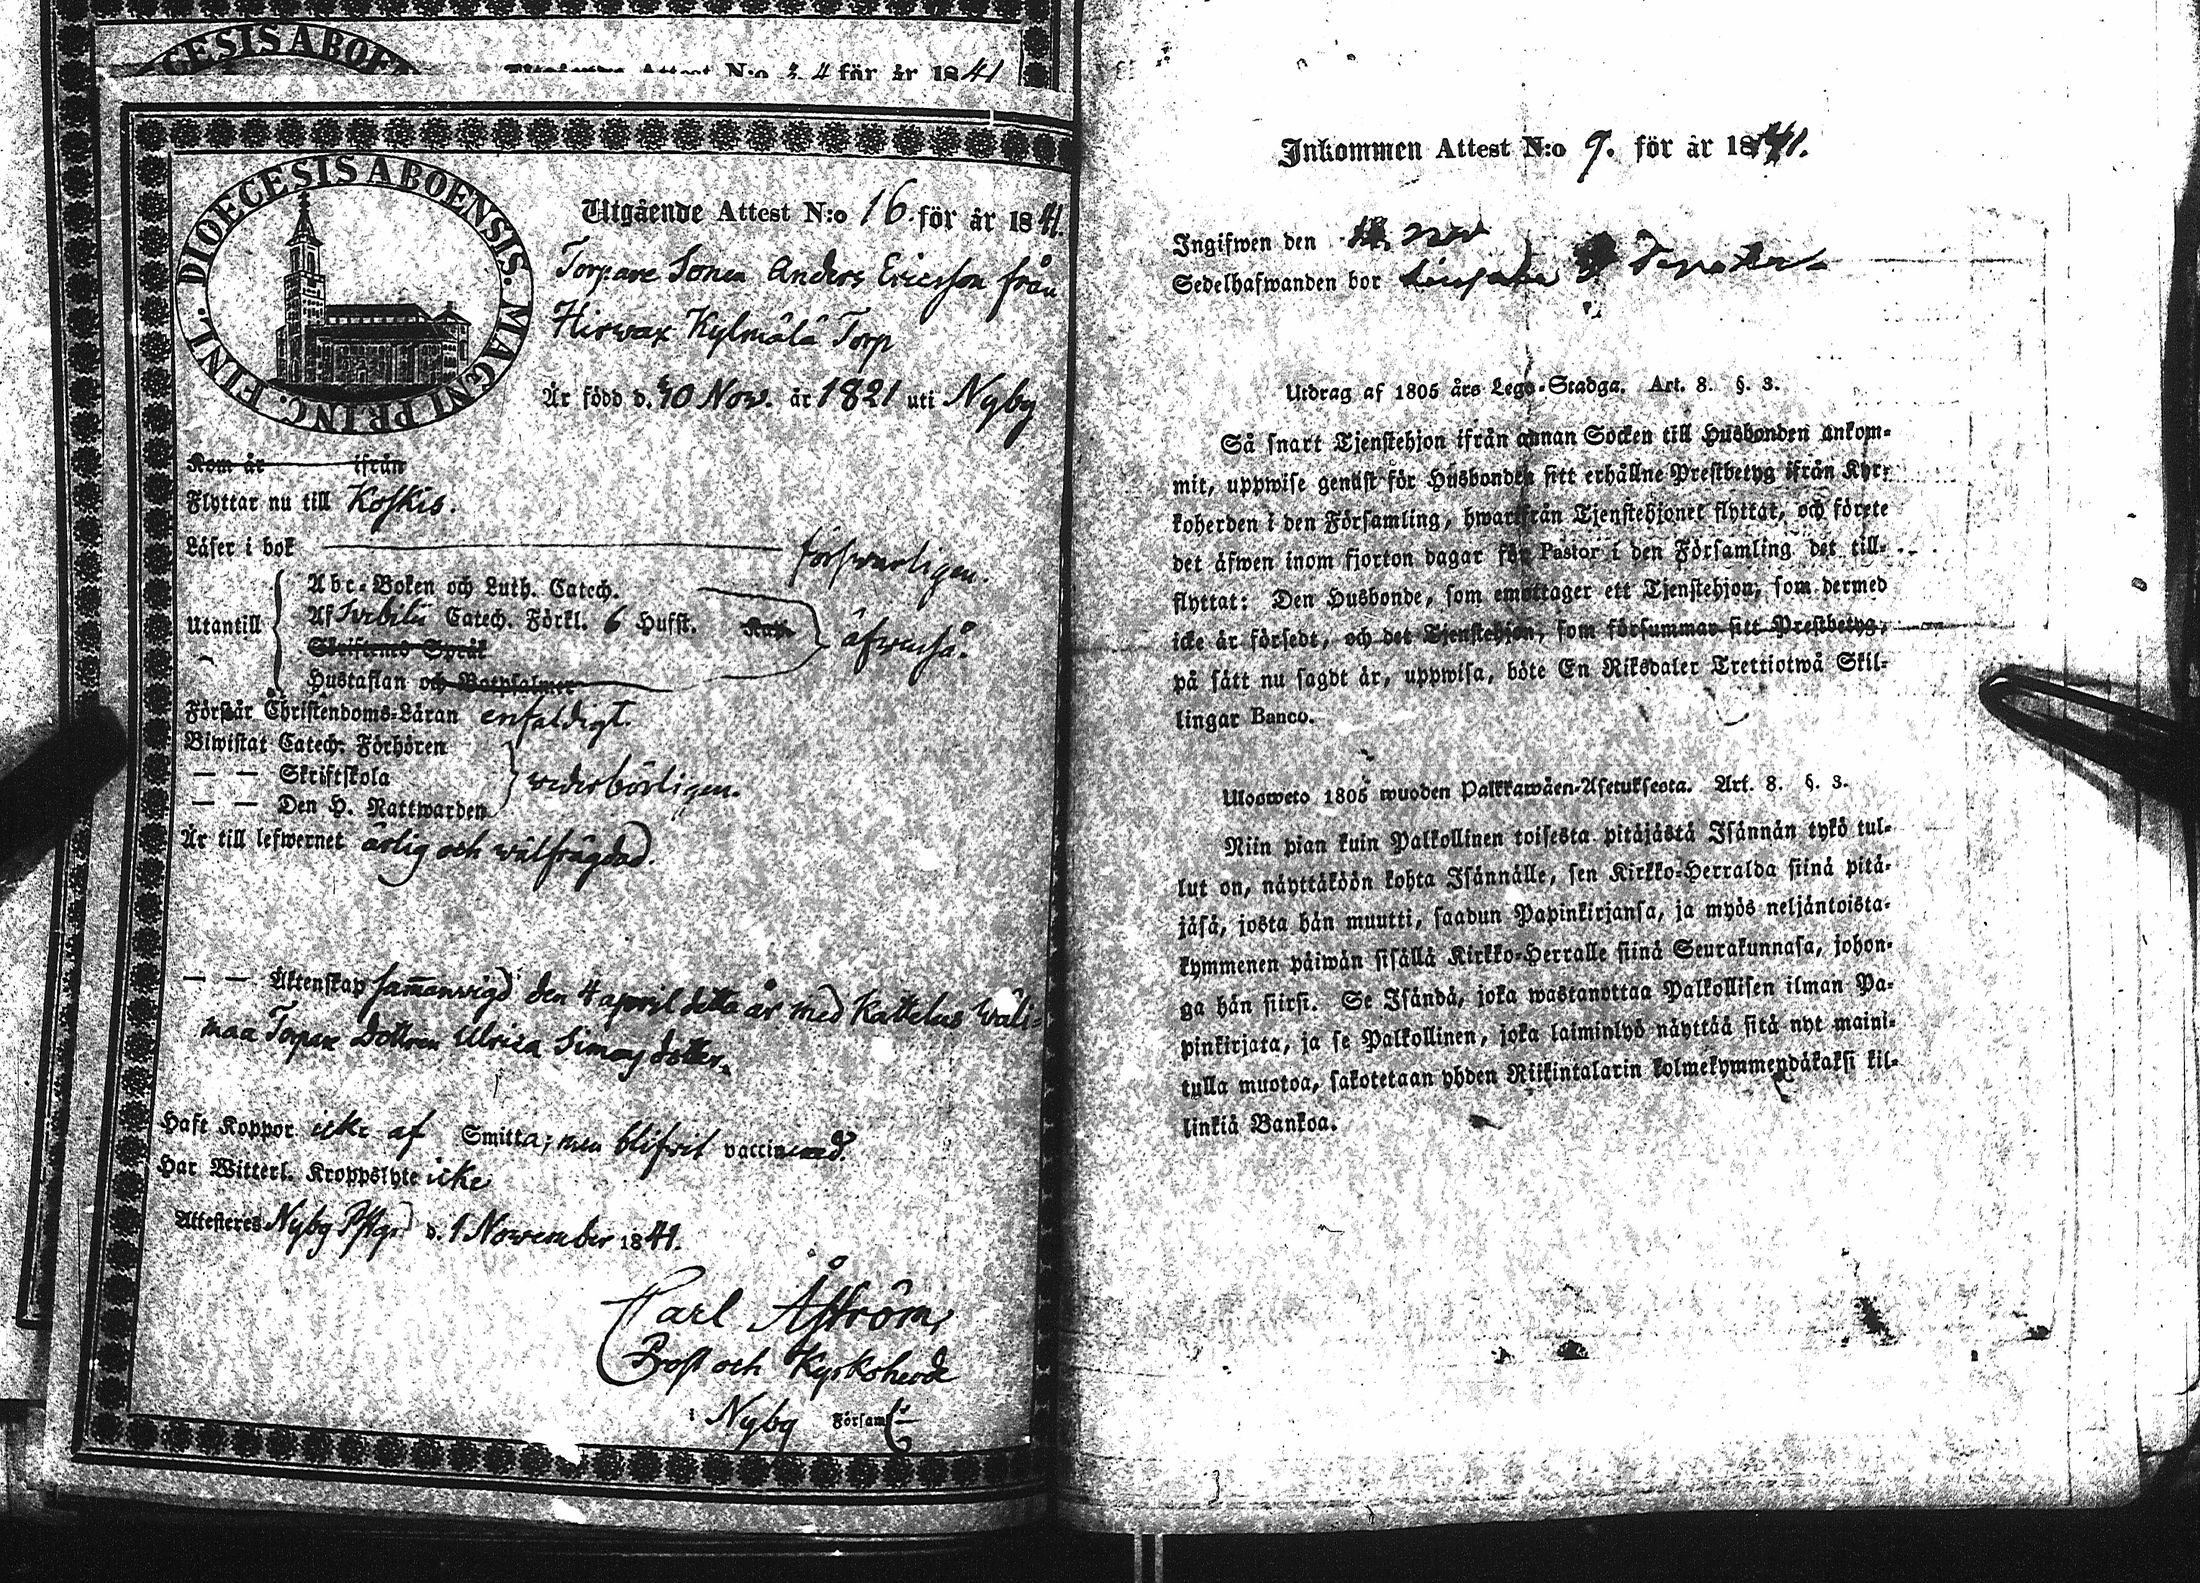 GESIS ABOE
Utgående Attest N:o 3. 4 för år 1841
DIOECESIS ABOENSIS. MAGNI PRINC. FINL.
Utgående Attest N:o 16. för år 1841.
Torpare Sonen Anders Ericsson från
Hirwax Kylmälä Torp
Är född d. 30 Nov. år 1821 uti Nyby
Kom år ifrån
Flyttar nu till Koskis.
Läser i bok försvarligen.
Utantill
Abc-Boken och Luth. Catech.
Af Svebilii Catech. Förkl. 6 Hufst. äfvenså.
Skriftenes Språk
Hustaflan och Botpsalmer
Förstår Christendoms-Läran enfaldigt.
Biwistat Catech. Förhören
— — Skriftskola wederbörligen.
— — Den H. Nattwarden
Är till lefwernet ärlig och wälfrägdad.
— — Äktenskap sammanvigd den 4 april detta år med Kattelus Wäli-
maa Torpar Dottren Ulrica Simonsdotter.
Haft Koppor icke af Smitta; men blifvit vaccinerad.
Har Witterl. Kroppslyte icke
Attesteras Nyby Pstgd d. 1 November 1841.
Carl Åström,
Prost och Kyrkoherde
i Nyby Församl.
Inkommen Attest N:o 9. för år 1841.
Ingifwen den Nov
Sedelhafwanden bor
Utdrag af 1805 års Lego-Stadga. Art. 8. §. 3.
Så snart Tjenstehjon ifrån annan Socken till Husbonden ankom-
mit, uppwise genast för Husbonden sitt erhållne Prestbetyg ifrån Kyr-
koherden i den Församling, hwarifrån Tjenstehjonet flyttat, och förete
det äfwen inom fjorton dagar för Pastor i den Församling det till-
flyttat: Den Husbonde, som emottager ett Tjenstehjon, som dermed
icke är försedt, och det Tjenstehjon, som försummar sitt Prestbetyg,
på sätt nu sagdt är, uppwisa, böte En Riksdaler Trettiotwå Skil-
lingar Banco.
Ulosweto 1805 wuoden Palkkawäen-Asetuksesta. Art. 8. §. 3.
Niin pian kuin Palkollinen toisesta pitäjästä Isännän tykö tul-
lut on, näyttäköön kohta Isännälle, sen Kirkko-Herralda siinä pitä-
jäsä, josta hän muutti, saadun Papinkirjansa, ja myös neljäntoista-
kymmenen päiwän sisällä Kirkko-Herralle siinä Seurakunnasa, johon-
ga hän siirsi. Se Isändä, joka wastanottaa Palkollisen ilman Pa-
pinkirjata, ja se Palkollinen, joka laiminlyö näyttää sitä nyt maini-
tulla muotoa, sakotetaan yhden Riikintalarin kolmekymmendäkaksi kil-
linkiä Bankoa.